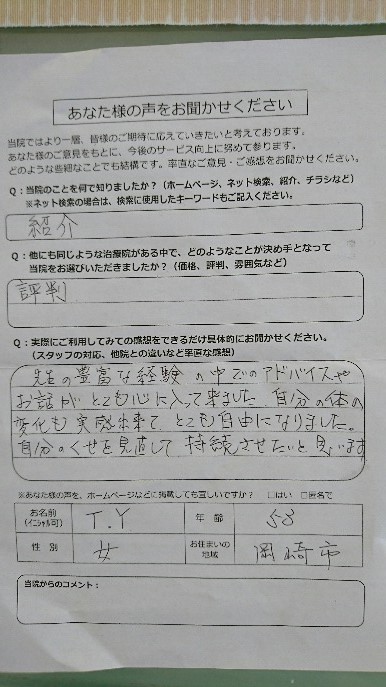 あなた様の声をお聞かせください
当院ではより一層、皆様のご期待に応えていきたいと考えております。
あなた様のご意見をもとに、今後のサービス向上に努めて参ります。
どのような些細なことでも結構です。率直なご意見・ご感想をお聞かせください。
Q：当院のことを何で知りましたか？（ホームページ、ネット検索、紹介、チラシなど）
※ネット検索の場合は、検索に使用したキーワードもご記入ください。
紹介
Q：他にも同じような治療院がある中で、どのようなことが決め手となって
当院をお選びいただきましたか？（価格、評判、雰囲気など）
評判
Q：実際にご利用してみての感想をできるだけ具体的にお聞かせください。
（スタッフの対応、他院との違いなど率直な感想）
先生の豊富な経験の中でのアドバイスや
お話が とても心に入って来ました 自分の体の
変化も実感出来て とても自由になりました。
自分のくせを見直して 持続させたいと思います
※あなた様の声を、ホームページなどに掲載しても宜しいですか？ □はい □匿名で
お名前 T.Y 年齢 53
(イニシャル可)
性別 女 お住まいの 岡崎市
地域
当院からのコメント：